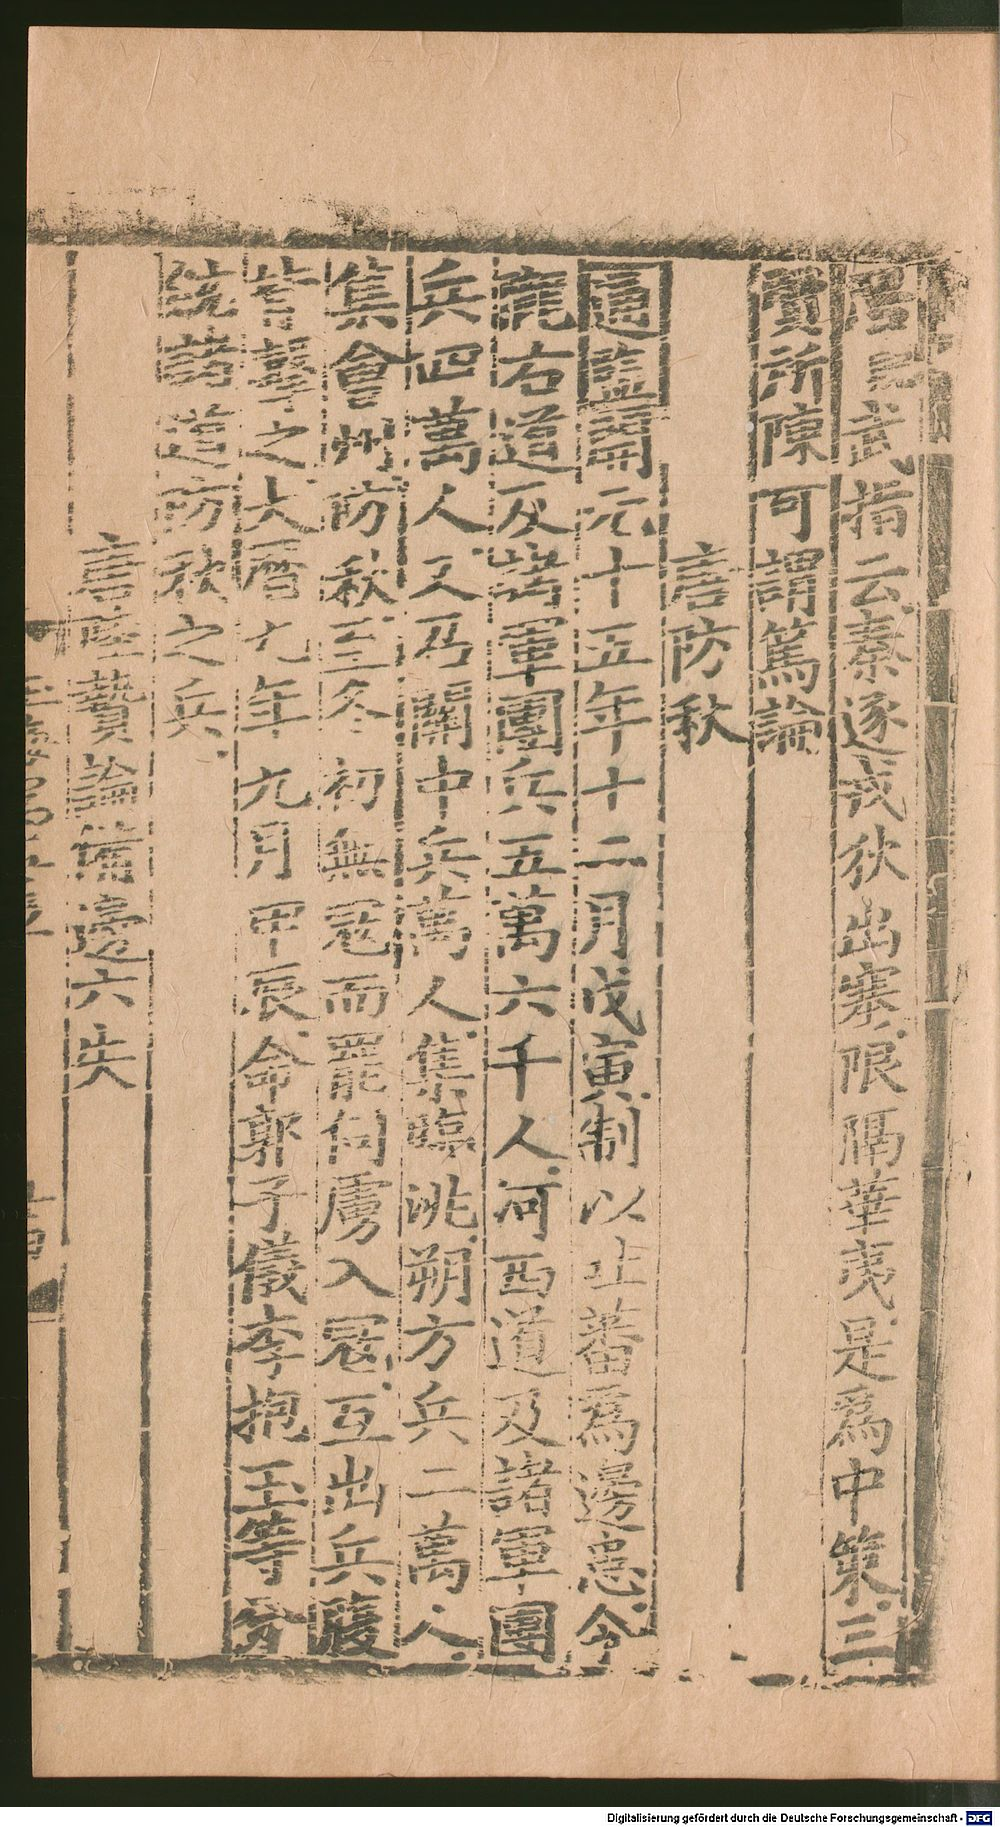 武指云秦逐戎狄出塞限隔華夷是爲中策三
賈所陳可謂篤論
言防秋
通鑑開元十五年十二月戊寅制以吐蕃爲邊患令
隴右道及諸軍團兵五萬六千人河西道及諸軍團
兵四萬人又乃關中兵萬人集臨洮朔方兵二萬人
集會州防秋三冬初無冦而罷伺虜入冦互出兵腹
背擊之大曆九年九月甲辰命郭子儀李抱玉等分
統諸道防秋之兵
言陸贄論備邊六失
Digitalisierung gefördert durch die Deutsche Forschungsgemeinschaft - DFG